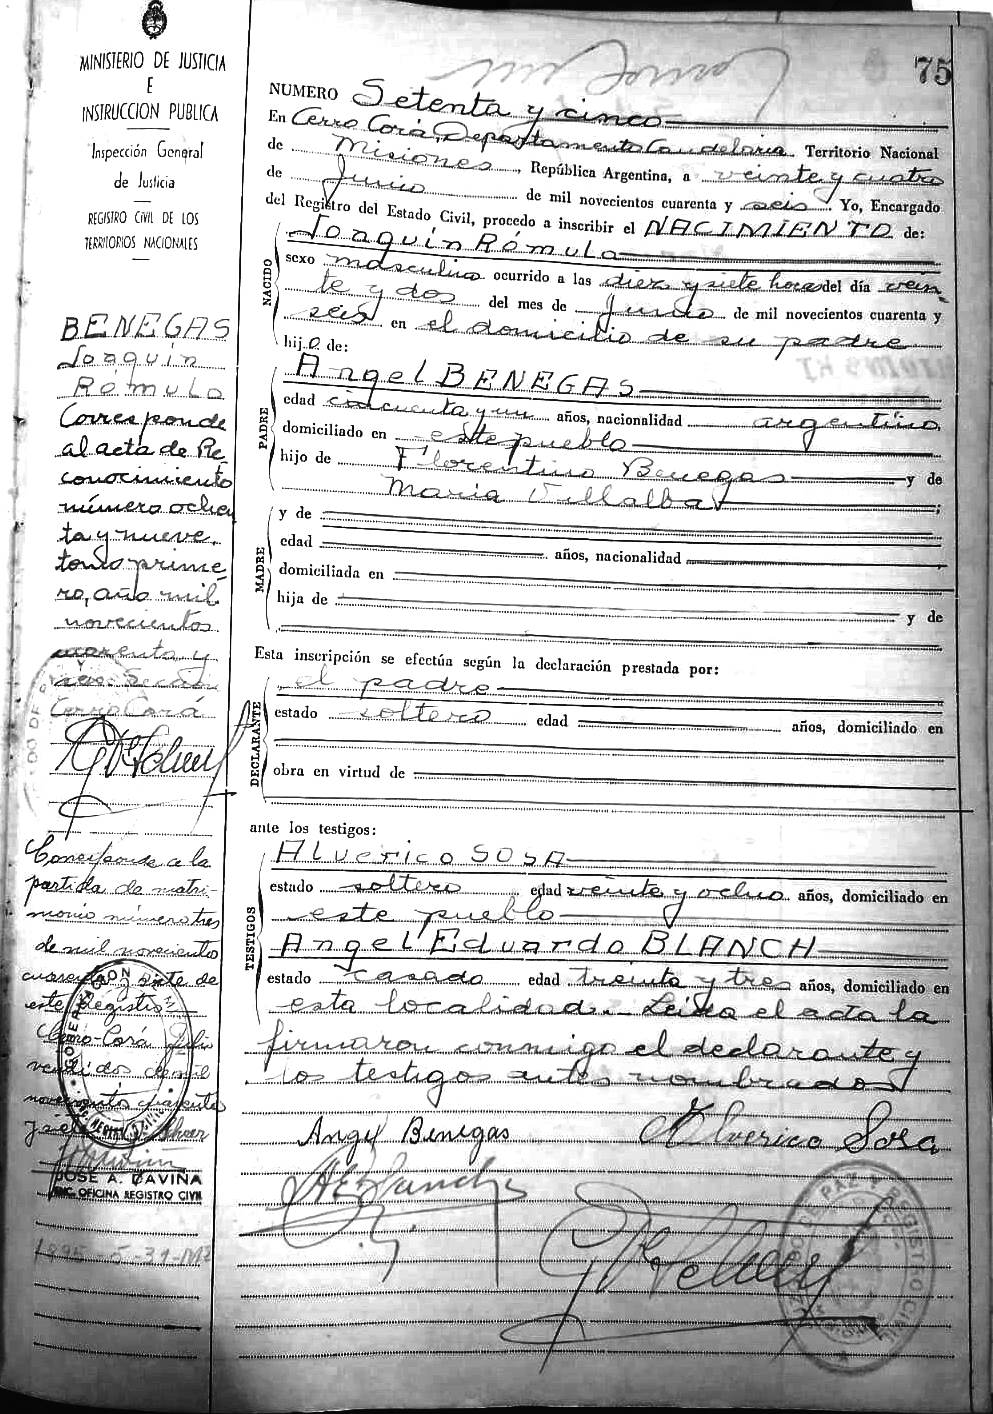 75
MINISTERIO DE JUSTICIA
E
INSTRUCCION PUBLICA
Inspección General
de Justicia
REGISTRO CIVIL DE LOS
TERRITORIOS NACIONALES
BENEGAS
Joaquín
Rómulo
Corresponde
al acta de Re
conocimiento
número ochen
ta y nueve,
tomo prime
ro, año mil
novecientos
cuarenta y
seis. Sección
Cerro Corá
Corresponde a la
partida de matri-
monio número tres
de mil novecientos
cuarenta y siete de
este Registro
Cerro-Corá Julio
veinti dos de mil
novecientos cuarenta
y siete
JOSE A. DAVIÑA
ENC. OFICINA REGISTRO CIVIL
NUMERO Setenta y cinco
En Cerro Corá, Departamento Candelaria Territorio Nacional
de Misiones, República Argentina, a veinte y cuatro
de Junio de mil novecientos cuarenta y seis Yo, Encargado
del Registro del Estado Civil, procedo a inscribir el NACIMIENTO de:
NACIDO
Joaquín Rómulo
sexo masculino ocurrido a las diez y siete horas del día vein
te y dos del mes de Junio de mil novecientos cuarenta y
seis en el domicilio de su padre
hijo de:
PADRE
Angel BENEGAS
edad cincuenta y un años, nacionalidad argentino
domiciliado en este pueblo
hijo de Florentino Benegas y de
Maria Villalba ;
MADRE
y de
edad años, nacionalidad
domiciliada en
hija de y de
Esta inscripción se efectúa según la declaración prestada por:
DECLARANTE
el padre
estado soltero edad años, domiciliado en
obra en virtud de
ante los testigos:
TESTIGOS
Alverico SOSA
estado soltero edad veinte y ocho años, domiciliado en
este pueblo
Angel Eduardo BLANCH
estado casado edad treinta y tres años, domiciliado en
esta localidad. Leída el acta la
firmaron conmigo el declarante y
los testigos antes nombrados
Angel Benegas Alverico Sosa